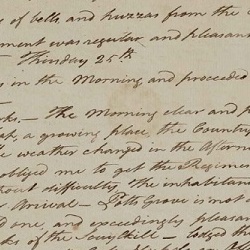 of bells and huzzas from the
ment was regular and pleasant
Thursday 25th
in the Morning and proceeded
rks. – the Morning clear and f
at, a growing place, the Country
e weather changed in the Aftern
obliged me to get the Regimen
hout difficulty, the inhabitan
r Arrival – Potts Grove is not a
d one, and exceedingly pleasan
ks of the Scuylkill – lodged th